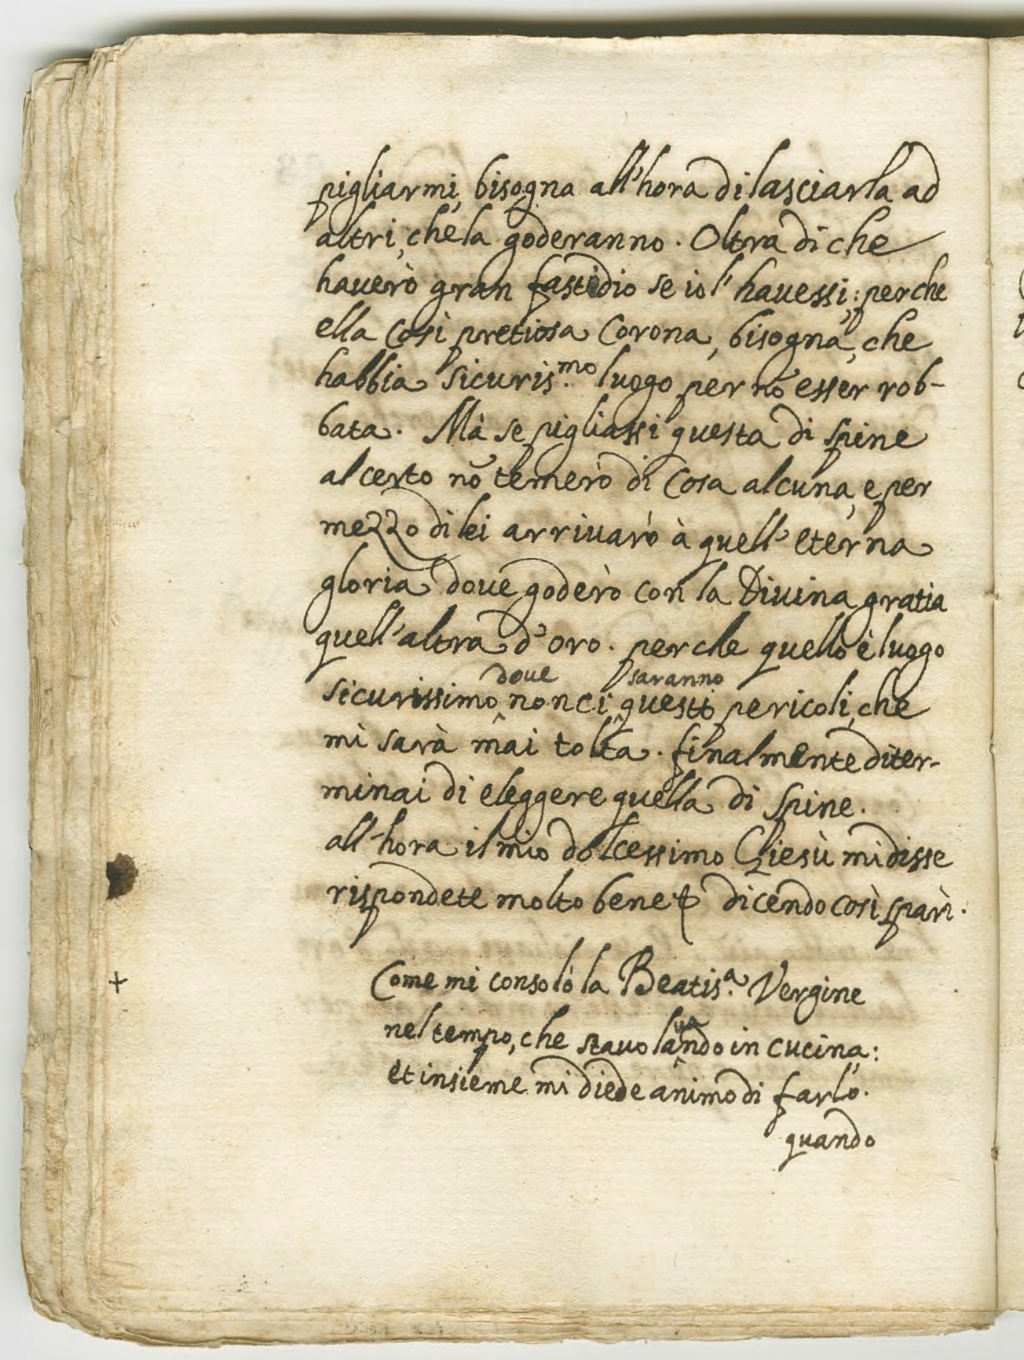 pigliarmi, bisogna all'hora di lasciarla ad
altri, che la goderanno. Oltra di che
haverò gran fastidio se io l'havessi; perche
ella così pretiosa Corona, bisogna, che
habbia sicuris.mo luogo per nō esser rob-
bata. Mà se pigliassi questa di spine
al certo nō temerò di Cosa alcuna, e per
mezzo di lei arrivarò à quell'eterna
gloria dove goderò con la Divina gratia
quell'altra d'oro. perche quello è luogo
dove saranno
sicurissimo ^ non ci ^ questi pericoli, che
mi sarà mai tolta. finalmente diter-
minai di eleggere quella di spine.
all'hora il mio dolcessimo Giesù mi disse
rispondete molto bene dicendo così sparì.
+ Come mi consolò la Beatis.a Vergine
va
nel tempo, che stavo la^ndo in cucina:
et insieme mi diede animo di farlo.
quando